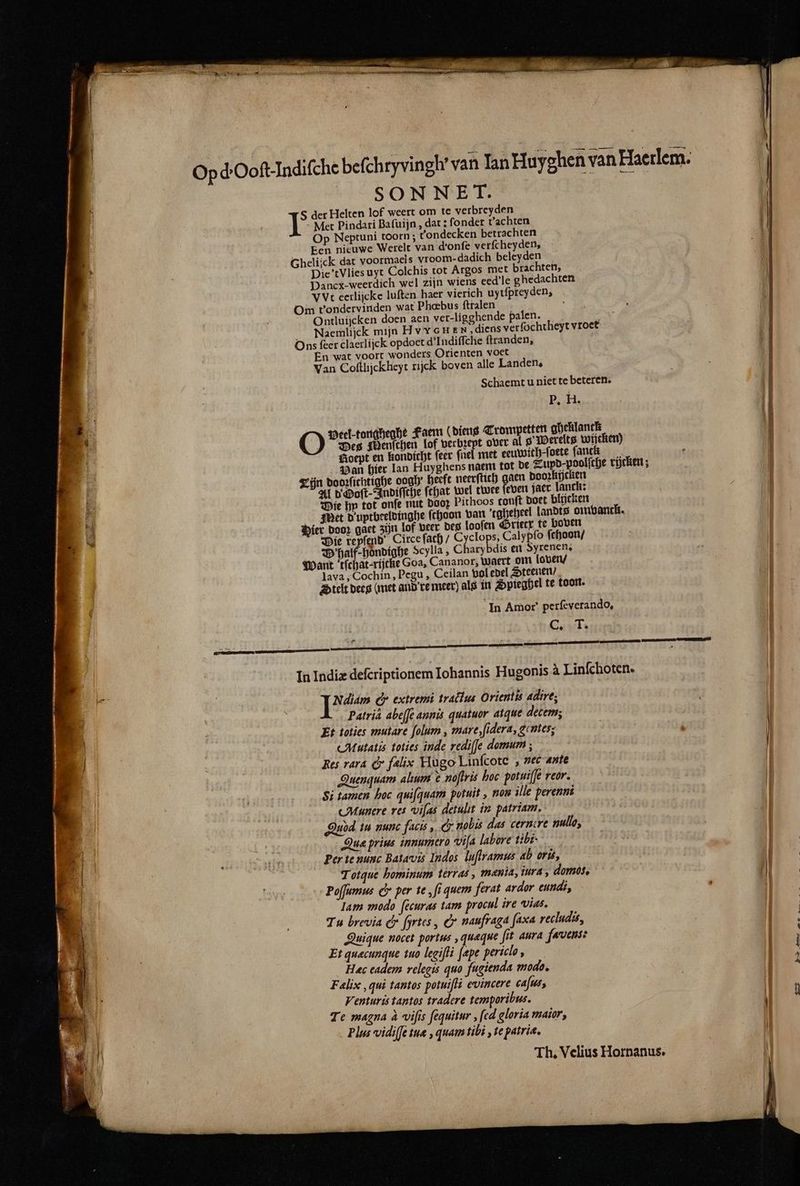 Op d'Ooſt-Indiſche beſchryvingh' van Ian Huyghen van Haerlem.
SONNET.
IS der Helten lof weert om te verbreyden
Met Pindari Baſuijn, dat: ſonder t'achten
Op Neptuni toorn; t'ondecken betrachten
Een nieuwe Werelt van d'onſe verſcheyden,
Ghelijck dat voormaels vroom-dadich beleyden
Die'tVlies uyt Colchis tot Argos met brachten,
Danck-weerdich wel zijn wiens eed'le ghedachten
VVt eerlijcke luſten haer vierich uytſpreyden,
Om t'ondervinden wat Phœbus ſtralen
Ontluijcken doen aen ver-ligghende palen.
Naemlijck mijn HVYGHEN, diens verſochtheyt vroet
Ons ſeer claerlijck opdoet d'Indiſſche ſtranden,
En wat voort wonders Orienten voet
Van Coſtlijckheyt rijck boven alle Landen.
Schaemt u niet te beteren.
P. H.
O Veel-tongheghe Faem (diens Trompetten gheklanck
Des Menſchen lof verbreyt over al s'Werelts wijcken)
Roept en kondicht ſeer ſnel met eeuwich-ſoete ſanck
Van hier Ian Huyghens naem tot de Zuyd-poolſche rijcken;
Zijn doorſichtighe oogh' heeft neerſtich gaen doorkijcken
Al d'Ooſt-Indiſſche ſchat wel twee ſeven jaer lanck:
Die hy tot onſe nut door Pithoos conſt doet blijcken
Met d'uytbeeldinghe ſchoon van 'tgheheel landts ombanck.
Hier door gaet zijn lof veer des looſen Griecx te boven
Die reyſend' Circe ſach / Cyclops, Calypſo ſchoon/
D'half-hondighe Scylla, Charybdis en Syrenen,
Want 'tſchat-rijcke Goa, Cananor, waert om loven/
Iava, Cochin, Pegu, Ceilan vol edel Steenen/
Stelt dees (met and're meer) als in Spieghel te toon.
In Amor' perſeverando,
C. T.
In Indiæ deſcriptionem Iohannis Hugonis à Linſchoten.
INdiam & extremi tractus Orientis adire;
Patriâ abeſſe annis quatuor atque decem;
Et toties mutare ſolum, mare, ſidera, gentes;
Mutatis toties inde rediſſe domum;
Res rara & fælix Hugo Linſcote, nec ante
Quenquam alium è noſtris hoc potuiſſe reor.
Si tamen hoc quiſquam potuit, non ille perenni
Munere res viſas detulit in patriam.
Quod tu nunc facis, & nobis das cernere nullo,
Quæ prius innumero viſa labore tibi.
Per te nunc Batavis Indos luſtramus ab oris,
Totque hominum terras, mœnia, iura, domos,
Poſſumus & per te, ſi quem ferat ardor eundi,
Iam modo ſecuras tam procul ire vias.
Tu brevia & ſyrtes, & naufraga ſaxa recludis,
Quique nocet portus, quæque ſit aura favens:
Et quæcunque tuo legiſti ſæpe periclo,
Hæc eadem relegis quo fugienda modo.
Fælix, qui tantos potuiſti evincere caſus,
Venturis tantos tradere temporibus.
Te magna à viſis ſequitur, ſed gloria maior,
Plus vidiſſe tuæ, quam tibi, te patriæ.
Th. Velius Hornanus.